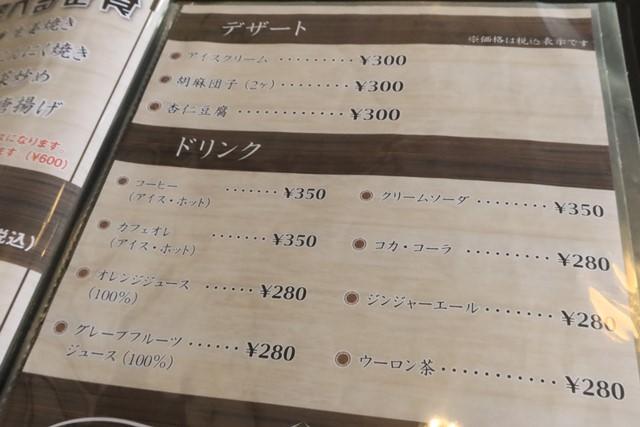 生姜焼き
にんにく焼き
炒め
唐揚げ
になります。
ます (¥600)
税込)
デザート
※価格は税込表示です
アイスクリーム ········· ¥300
胡麻団子 (2ヶ) ········ ¥300
杏仁豆腐 ············ ¥300
ドリンク
コーヒー
(アイス・ホット) ······· ¥350
カフェオレ
(アイス・ホット) ······· ¥350
オレンジジュース
(100%) ······ ¥280
グレープフルーツ
ジュース (100%) ······ ¥280
クリームソーダ ········ ¥350
コカ・コーラ ········· ¥280
ジンジャーエール ········ ¥280
ウーロン茶 ············ ¥280